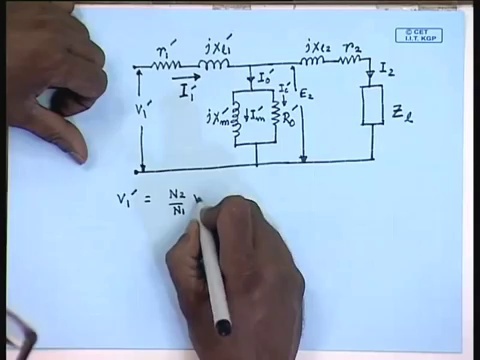 © CET
I.I.T. KGP
r₁′ jxl₁′ jxl₂ r₂
I₁′ I₀′ I₂
V₁′ jXm′ Im′ Ii′ R₀′ E₂ Zl
V₁′ = N₂/N₁